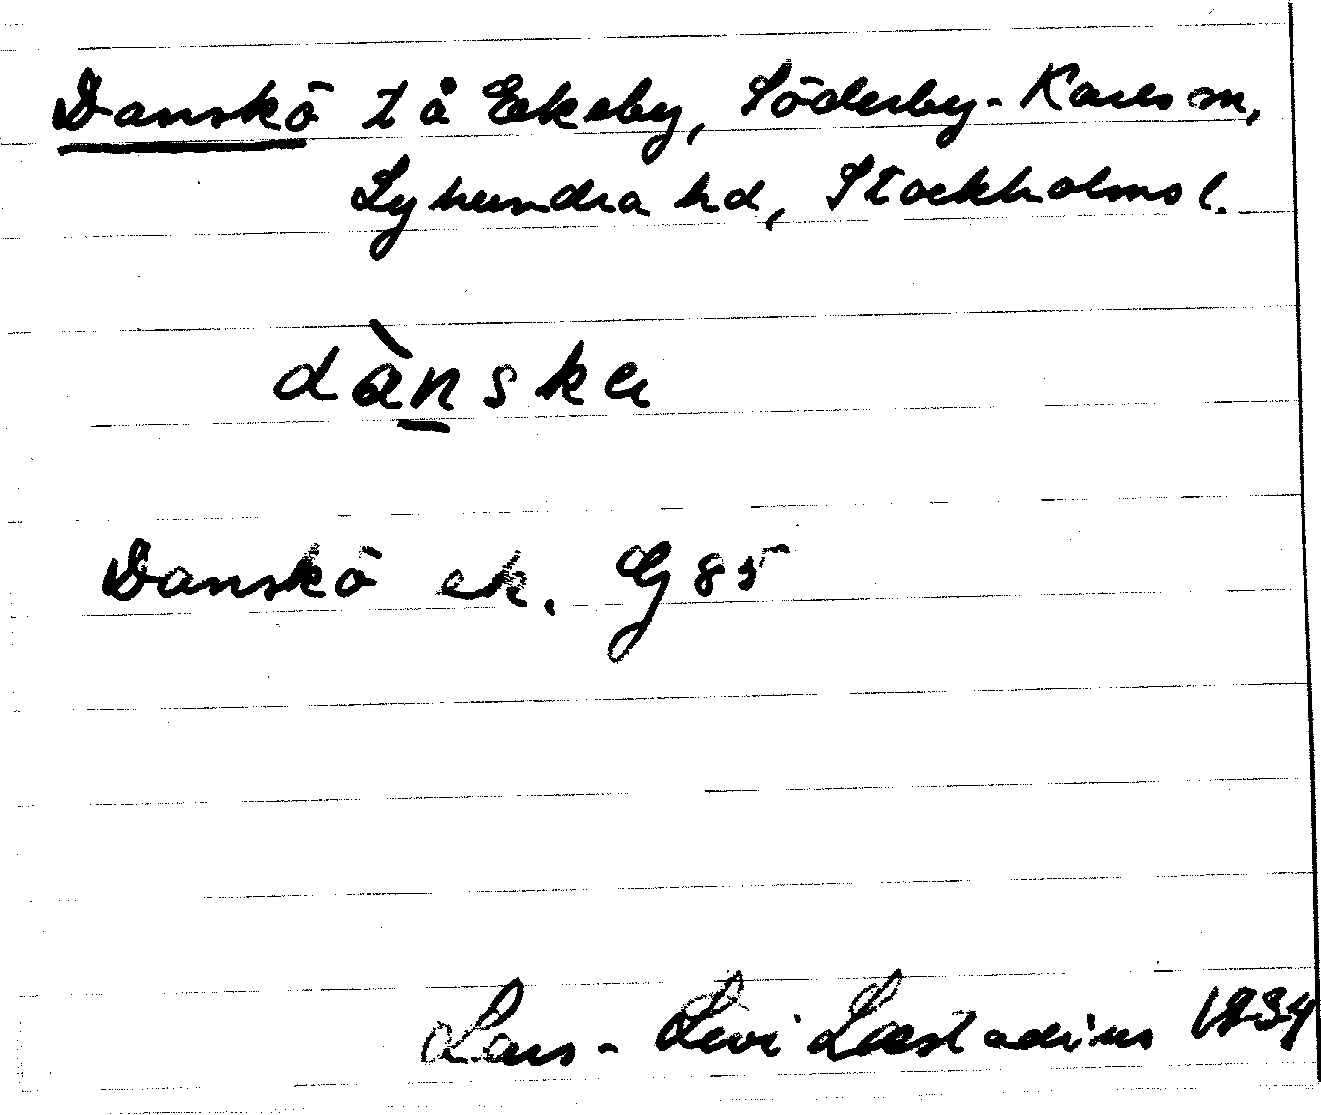 Danskö t å Eekeby, Söderby-Karls sn,
Lyhundra hd, Stockholms l.
dànska
Danskö ek. G 85
Lars-Levi Læstadius 1934